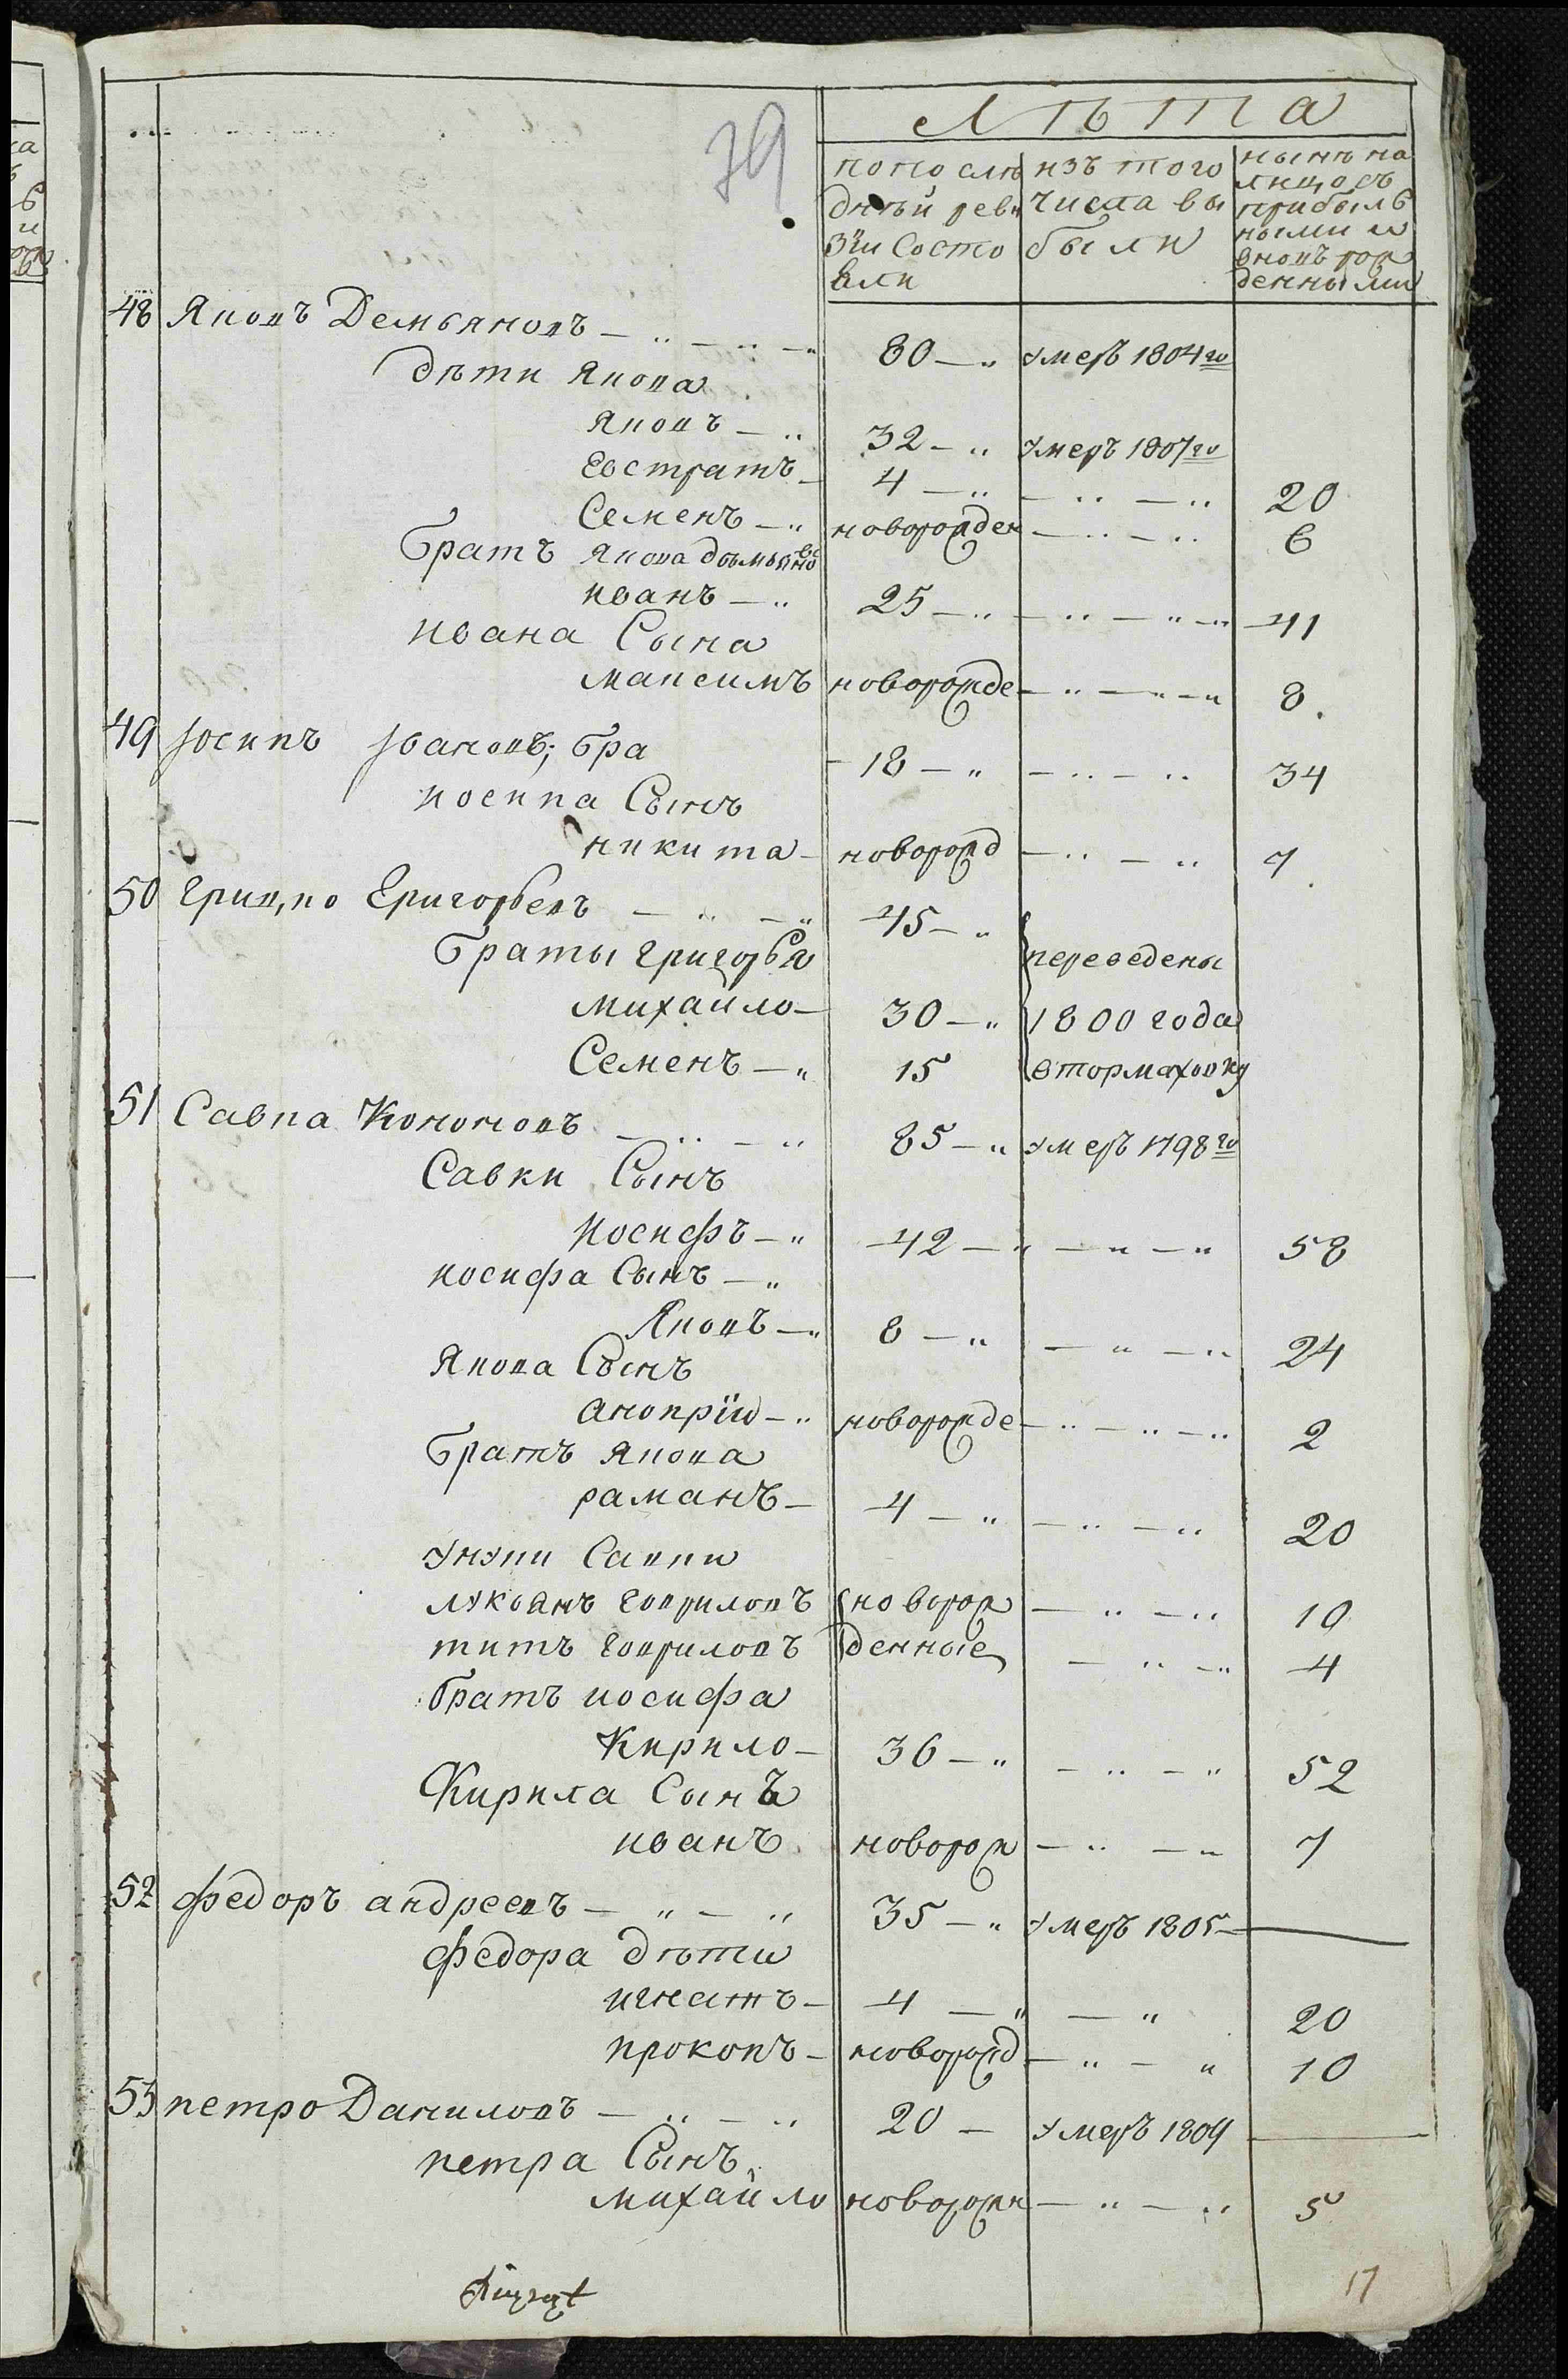 79
Лѣта
по после
дней реви
зіи состо
яли
изъ того
числа вы
были
нынѣ на
лицо съ
прибыль
ными и
вновь рож
денными
48 Яковъ Демьяновъ 80 умеръ 1804го
дѣти Якова
Яковъ 32 умеръ 1807го
Евстратъ 4 20
Семенъ новорожден 6
Братъ Якова
иванъ 25 41
ивана Сына
максимъ новорожде 8
49 Іосипъ Івановъ; бра 18 34
иосипа Сынъ
никита новорожд 7
50 Грицко Григорьевъ 45
Браты григорья переведены
михайло 30 1800 года
Семенъ 15
51 Савка Кононовъ 85 умеръ 1798го
Савки Сынъ
Иосифъ 42 58
иосифа Сынъ
Яковъ 8 24
Якова Сынъ
аноприй новорожде 2
Братъ Якова
раманъ 4 20
унуки Савки
лукьянъ гавриловъ новорож 10
титъ гавриловъ денные 4
братъ иосифа
Кирило 36 52
Кирила Сынъ
иванъ новорож 7
52 федоръ андреевъ 35 умеръ 1805
федора дѣти
игнатъ 4 20
прокопъ новорожд 10
53 петро Даниловъ 20 умеръ 1809
петра Сынъ
михайло новорожд 5
17